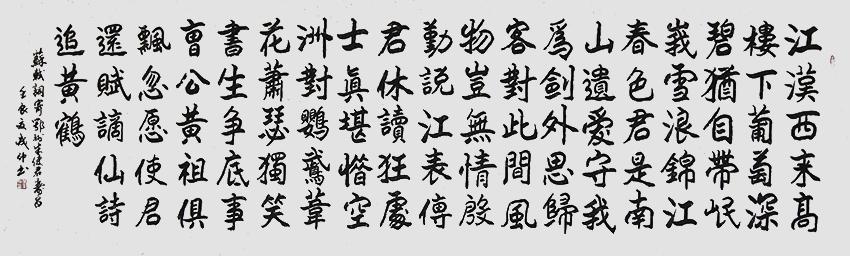 江漢西来高
樓下葡萄深
碧猶自帶岷
峩雪浪錦江
春色君是南
山遺愛守我
爲劍外思歸
客對此間風
物豈無情殷
勤説江表傳
君休讀狂處
士眞堪惜空
洲對鸚鵡葦
花蕭瑟獨笑
書生争底事
曹公黄祖俱
飄忽愿使君
還賦謫仙詩
追黄鶴
蘇軾詞寄鄂州朱使君壽昌
壬辰夏